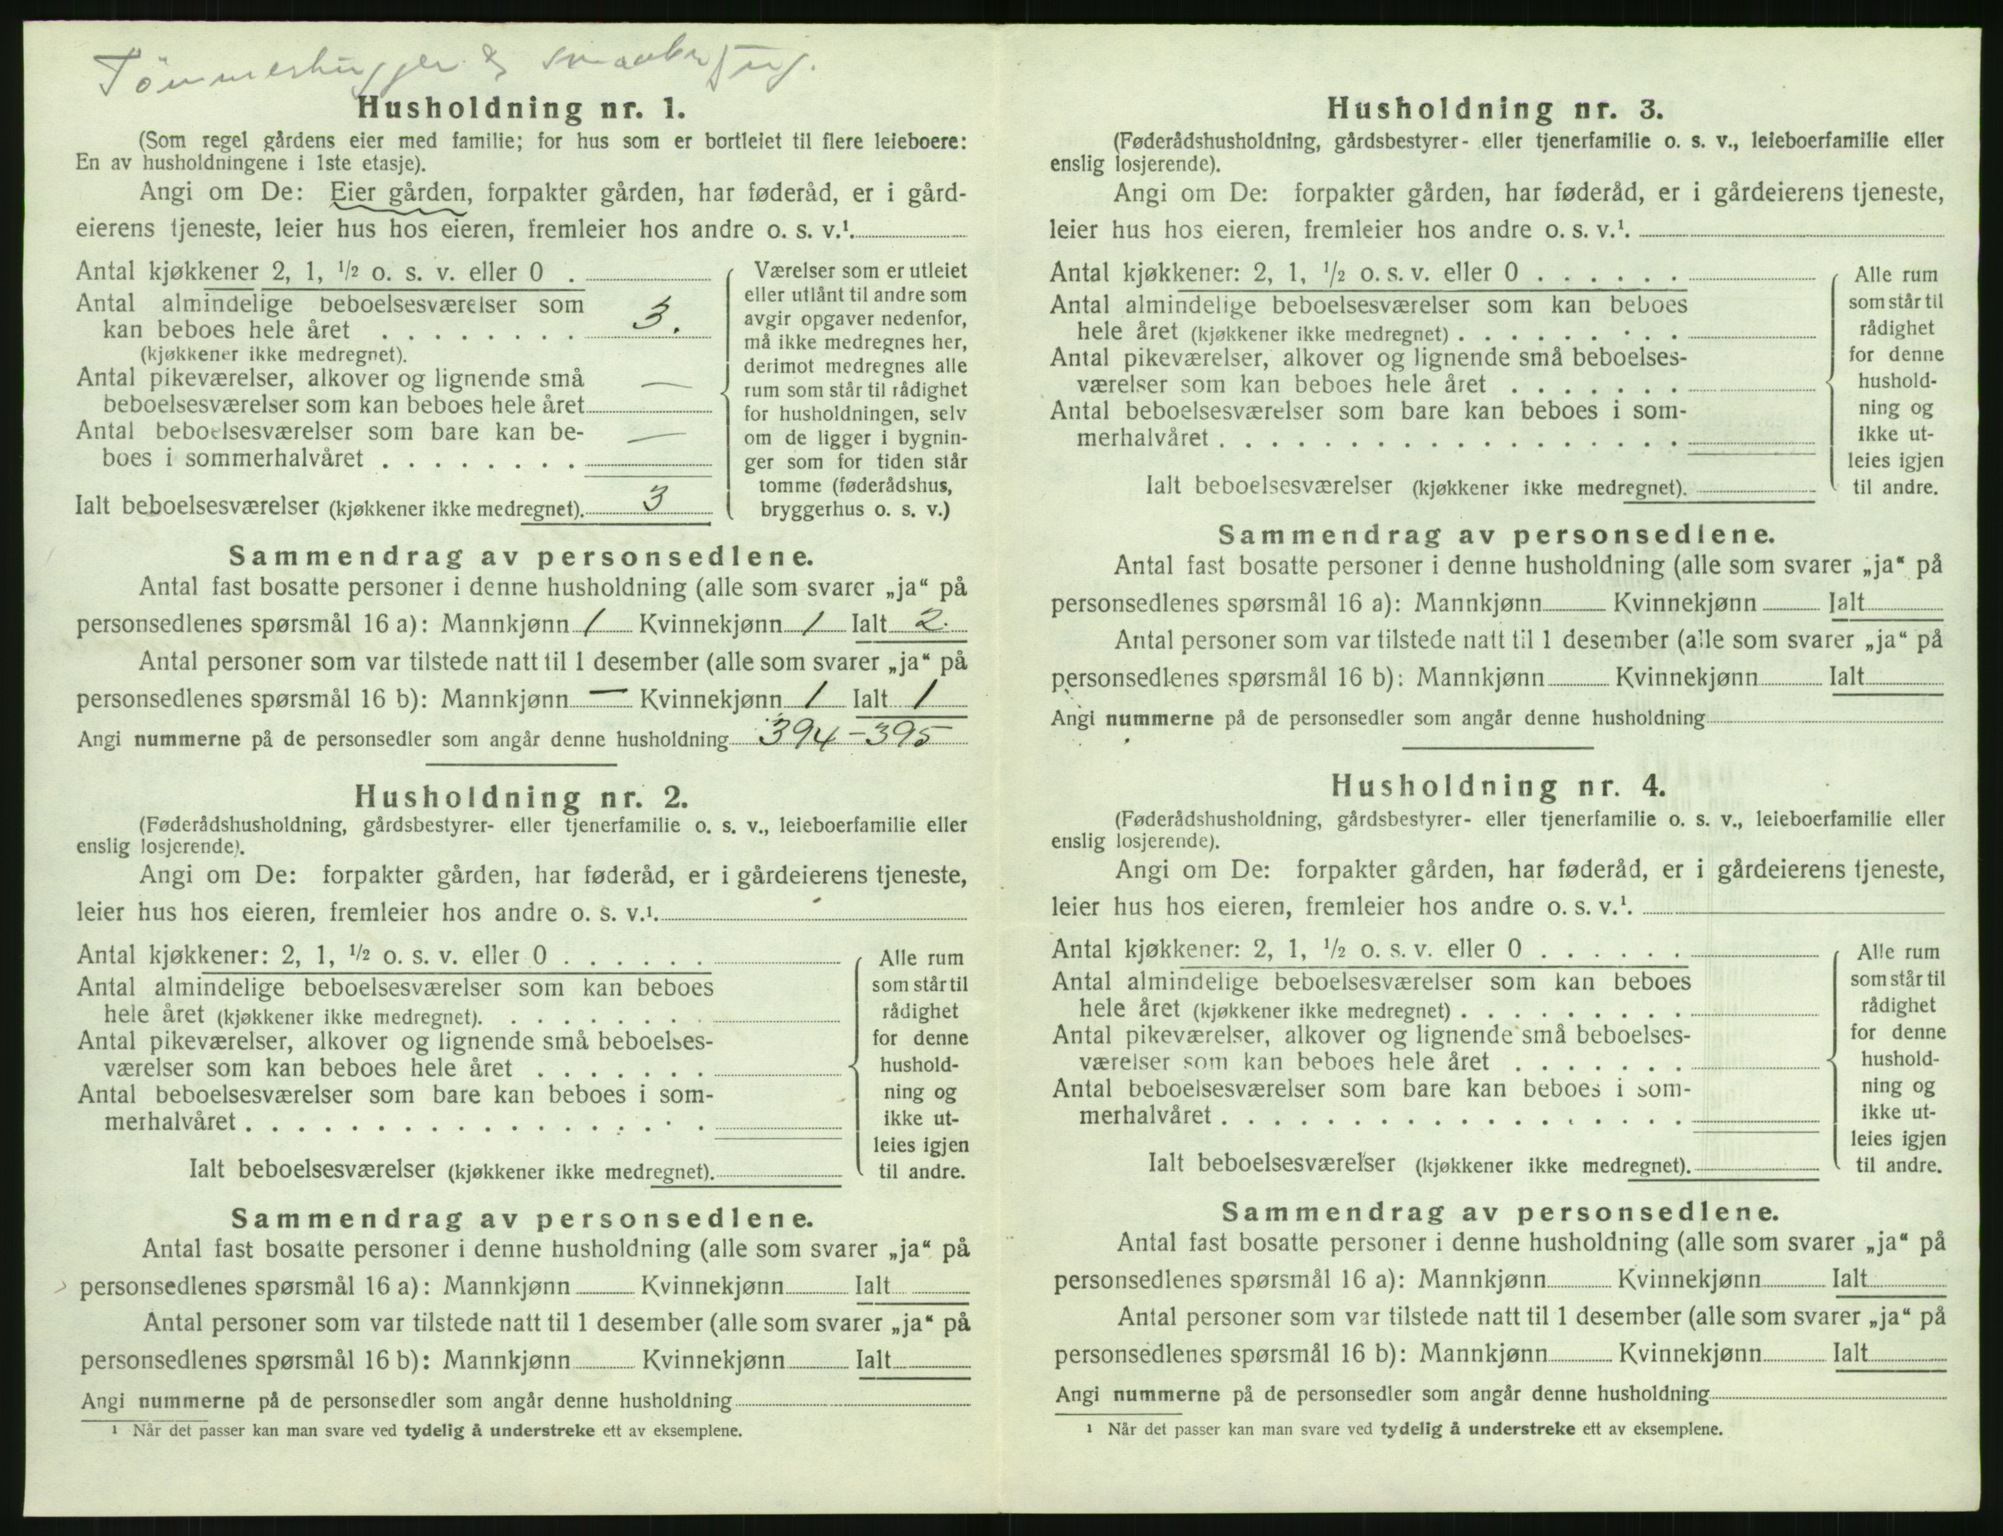 Tømmerhugger &
Husholdning nr. 1.
(Som regel gårdens eier med familie; for hus som er bortleiet til flere leieboere:
En av husholdningene i 1ste etasje).
Angi om De: Eier gården, forpakter gården, har føderåd, er i gård-
eierens tjeneste, leier hus hos eieren, fremleier hos andre o. s. v.¹
Antal kjøkkener 2, 1, ½ o. s. v. eller 0 .
Antal almindelige beboelsesværelser som
kan beboes hele året . . . . . . . 3.
(kjøkkener ikke medregnet).
Antal pikeværelser, alkover og lignende små —
beboelsesværelser som kan beboes hele året
Antal beboelsesværelser som bare kan be- —
boes i sommerhalvåret . . . . . . . .
Ialt beboelsesværelser (kjøkkener ikke medregnet). 3
Værelser som er utleiet
eller utlånt til andre som
avgir opgaver nedenfor,
må ikke medregnes her,
derimot medregnes alle
rum som står til rådighet
for husholdningen, selv
om de ligger i bygnin-
ger som for tiden står
tomme (føderådshus,
bryggerhus o. s. v.)
Sammendrag av personsedlene.
Antal fast bosatte personer i denne husholdning (alle som svarer „ja“ på
personsedlenes spørsmål 16 a): Mannkjønn 1 Kvinnekjønn 1 Ialt 2.
Antal personer som var tilstede natt til 1 desember (alle som svarer „ja“ på
personsedlenes spørsmål 16 b): Mannkjønn — Kvinnekjønn 1 Ialt 1
Angi nummerne på de personsedler som angår denne husholdning 394–395
Husholdning nr. 2.
(Føderådshusholdning, gårdsbestyrer- eller tjenerfamilie o. s. v., leieboerfamilie eller
enslig losjerende).
Angi om De: forpakter gården, har føderåd, er i gårdeierens tjeneste,
leier hus hos eieren, fremleier hos andre o. s. v.¹
Antal kjøkkener: 2, 1, ½ o. s. v. eller 0 . . . . . .
Antal almindelige beboelsesværelser som kan beboes
hele året (kjøkkener ikke medregnet). . . . . . . . .
Antal pikeværelser, alkover og lignende små beboelses-
værelser som kan beboes hele året . . . . . . .
Antal beboelsesværelser som bare kan beboes i som-
merhalvåret . . . . . . . . . . . . . . . . . .
Ialt beboelsesværelser (kjøkkener ikke medregnet).
Alle rum
som står til
rådighet
for denne
hushold-
ning og
ikke ut-
leies igjen
til andre.
Sammendrag av personsedlene.
Antal fast bosatte personer i denne husholdning (alle som svarer „ja“ på
personsedlenes spørsmål 16 a): Mannkjønn Kvinnekjønn Ialt
Antal personer som var tilstede natt til 1 desember (alle som svarer „ja“ på
personsedlenes spørsmål 16 b): Mannkjønn Kvinnekjønn Ialt
Angi nummerne på de personsedler som angår denne husholdning
¹ Når det passer kan man svare ved tydelig å understreke ett av eksemplene.
Husholdning nr. 3.
(Føderådshusholdning, gårdsbestyrer- eller tjenerfamilie o. s. v., leieboerfamilie eller
enslig losjerende).
Angi om De: forpakter gården, har føderåd, er i gårdeierens tjeneste,
leier hus hos eieren, fremleier hos andre o. s. v.¹
Antal kjøkkener: 2, 1, ½ o. s. v. eller 0 . . . . . .
Antal almindelige beboelsesværelser som kan beboes
hele året (kjøkkener ikke medregnet) . . . . . . . . .
Antal pikeværelser, alkover og lignende små beboelses-
værelser som kan beboes hele året . . . . . . .
Antal beboelsesværelser som bare kan beboes i som-
merhalvåret . . . . . . . . . . . . . . . . . .
Ialt beboelsesværelser (kjøkkener ikke medregnet).
Alle rum
som står til
rådighet
for denne
hushold-
ning og
ikke ut-
leies igjen
til andre.
Sammendrag av personsedlene.
Antal fast bosatte personer i denne husholdning (alle som svarer „ja“ på
personsedlenes spørsmål 16 a): Mannkjønn Kvinnekjønn Ialt
Antal personer som var tilstede natt til 1 desember (alle som svarer „ja“ på
personsedlenes spørsmål 16 b): Mannkjønn Kvinnekjønn Ialt
Angi nummerne på de personsedler som angår denne husholdning
Husholdning nr. 4.
(Føderådshusholdning, gårdsbestyrer- eller tjenerfamilie o. s. v., leieboerfamilie eller
enslig losjerende).
Angi om De: forpakter gården, har føderåd, er i gårdeierens tjeneste,
leier hus hos eieren, fremleier hos andre o. s. v.¹
Antal kjøkkener: 2, 1, ½ o. s. v. eller 0 . . . . . .
Antal almindelige beboelsesværelser som kan beboes
hele året (kjøkkener ikke medregnet) . . . . . . . . .
Antal pikeværelser, alkover og lignende små beboelses-
værelser som kan beboes hele året . . . . . . .
Antal beboelsesværelser som bare kan beboes i som-
merhalvåret . . . . . . . . . . . . . . . . . .
Ialt beboelsesværelser (kjøkkener ikke medregnet).
Alle rum
som står til
rådighet
for denne
hushold-
ning og
ikke ut-
leies igjen
til andre.
Sammendrag av personsedlene.
Antal fast bosatte personer i denne husholdning (alle som svarer „ja“ på
personsedlenes spørsmål 16 a): Mannkjønn Kvinnekjønn Ialt
Antal personer som var tilstede natt til 1 desember (alle som svarer „ja“ på
personsedlenes spørsmål 16 b): Mannkjønn Kvinnekjønn Ialt
Angi nummerne på de personsedler som angår denne husholdning
¹ Når det passer kan man svare ved tydelig å understreke ett av eksemplene.